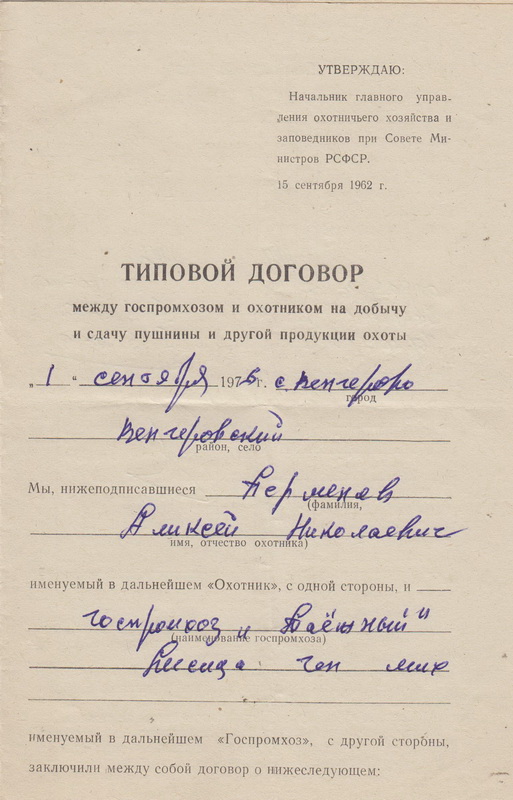 УТВЕРЖДАЮ:
Начальник главного управ-
ления охотничьего хозяйства и
заповедников при Совете Ми-
нистров РСФСР.
15 сентября 1962 г.
ТИПОВОЙ ДОГОВОР
между госпромхозом и охотником на добычу
и сдачу пушнины и другой продукции охоты
„1“ сентября 1976 г. с. Венгерово
город
Венгеровский
район, село
Мы, нижеподписавшиеся
(фамилия,
Алексей Николаевич
имя, отчество охотника)
именуемый в дальнейшем «Охотник», с одной стороны, и
госпромхоз „Таёжный"
(наименование госпромхоза)
именуемый в дальнейшем «Госпромхоз», с другой стороны,
заключили между собой договор о нижеследующем: